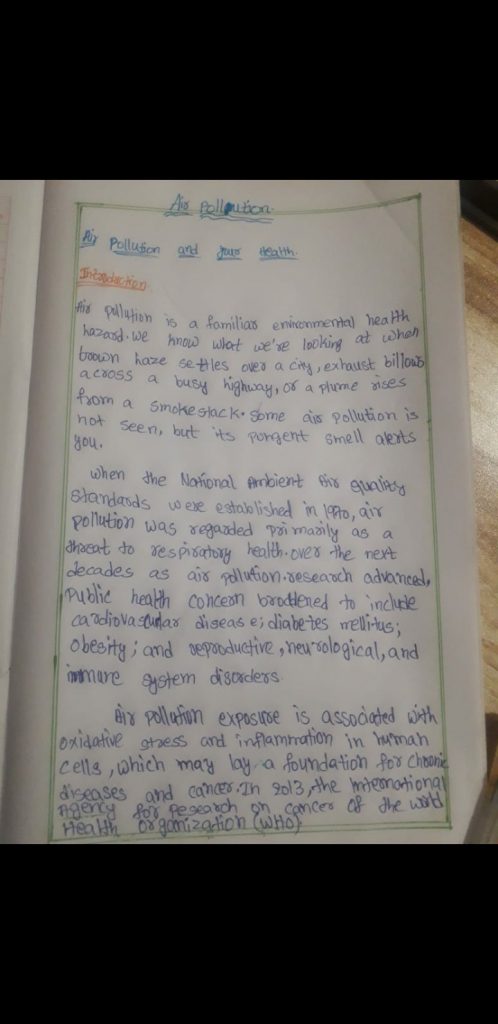 Air Pollution
Air Pollution and your Health.
Introduction
Air pullution is a familiar environmental health
hazard. we know what we're looking at when
brown haze settles over a city, exhaust billows
across a busy highway, or a plume rises
from a smokestack. Some air pollution is
not seen, but its pungent smell alerts
you.
when the National Ambient Air quality
standards were established in 1970, air
pollution was regarded primarily as a
threat to respiratory health. over the next
decades as air pollution. research advanced,
Public health concern broddened to include
cardiovascular disease; diabetes mellitus;
obesity; and reproductive, neurological, and
immune system disorders.
Air pollution exposure is associated with
oxidative stress and inflammation in human
cells, which may lay a foundation for chronic
diseases and cancer. In 2013, the International
Agency for Research on cancer of the world
Health Organization (WHO)